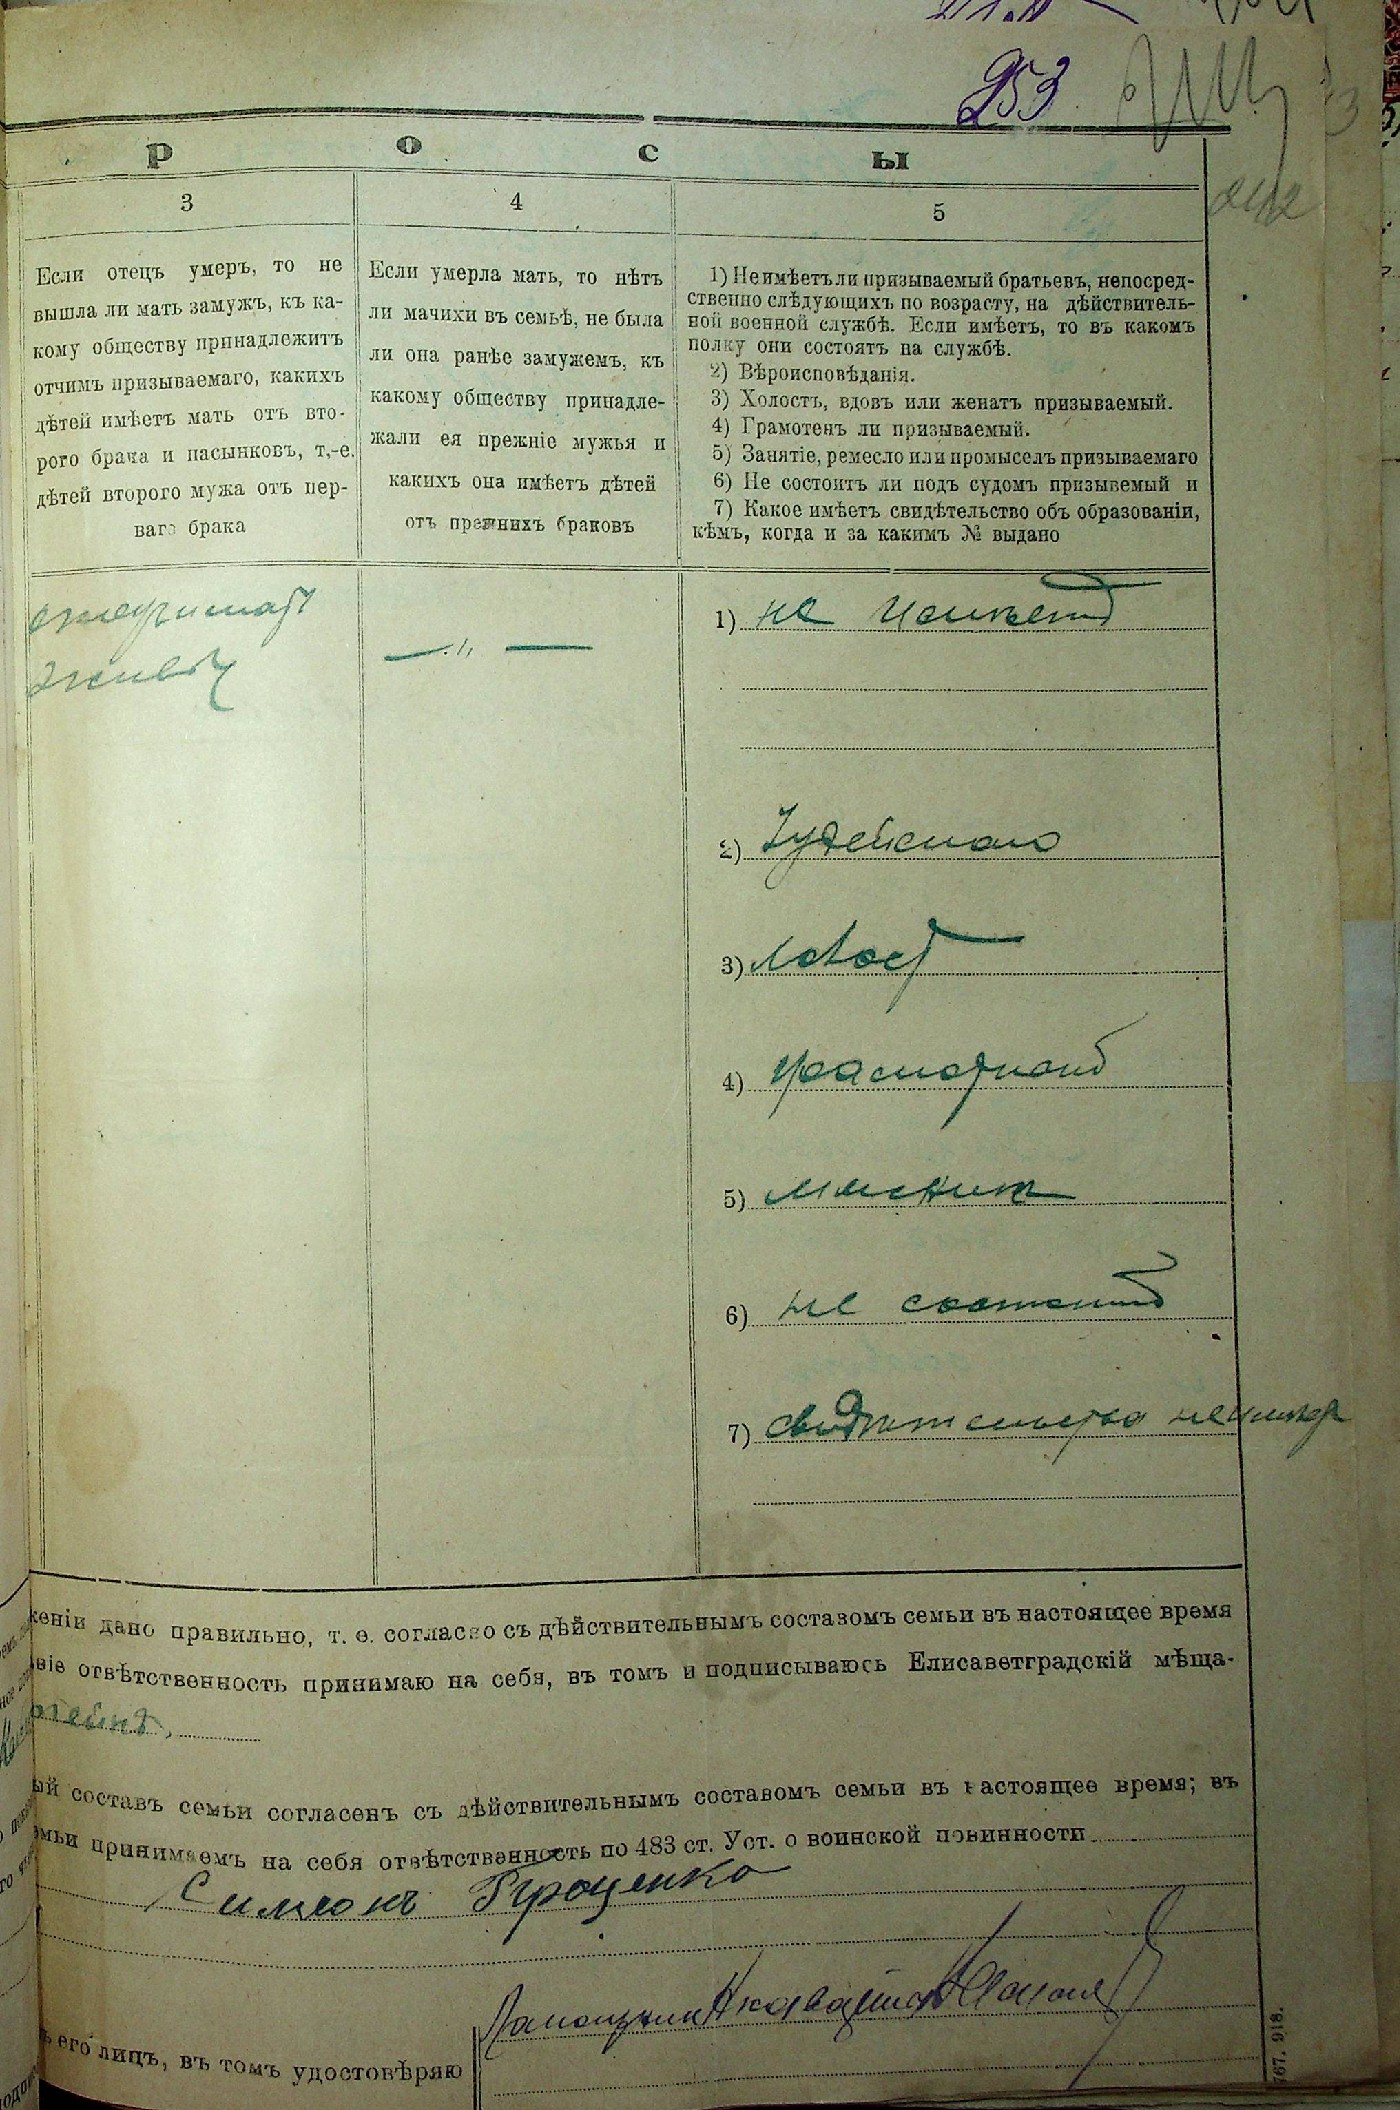 253
р о с ы
3
4
5
Если отецъ умеръ, то не
вышла ли мать замужъ, къ ка-
кому обществу принадлежитъ
отчимъ призываемаго, какихъ
дѣтей имѣетъ мать отъ вто-
рого брака и пасынковъ, т,-е.
дѣтей второго мужа отъ пер-
ваго брака
Если умерла мать, то нѣтъ
ли мачихи въ семьѣ, не была
ли она ранѣе замужемъ, къ
какому обществу принадле-
жали ея прежніе мужья и
какихъ она имѣетъ дѣтей
отъ прежнихъ браковъ
1) Не имѣетъ ли призываемый братьевъ, непосред-
ственно слѣдующихъ по возрасту, на дѣйствитель-
ной военной службѣ. Если имѣетъ, то въ какомъ
полку они состоятъ на службѣ.
2) Вѣроисповѣданія.
3) Холостъ, вдовъ или женатъ призываемый.
4) Грамотенъ ли призываемый.
5) Занятіе, ремесло или промыселъ призываемаго
6) Не состоитъ ли подъ судомъ призываемый и
7) Какое имѣетъ свидѣтельство объ образованіи,
кѣмъ, когда и за какимъ № выдано
— " —
1) не имѣетъ
2) Іудейскаго
3) холост
4) грамотный
5) мясник
6) не состоитъ
7) свидѣтельства не имѣет
женіи дано правильно, т. е. согласно съ дѣйствительнымъ составомъ семьи въ настоящее время
віе отвѣтственность принимаю на себя, въ томъ и подписываюсь Елисаветградскій мѣща-
ый составъ семьи согласенъ съ дѣйствительнымъ составомъ семьи въ настоящее время; въ
емьи принимаемъ на себя отвѣтственность по 483 ст. Уст. о воинской повинности
Симеонъ Гроценко
ъ его лицъ, въ томъ удостовѣряю
767. 918.